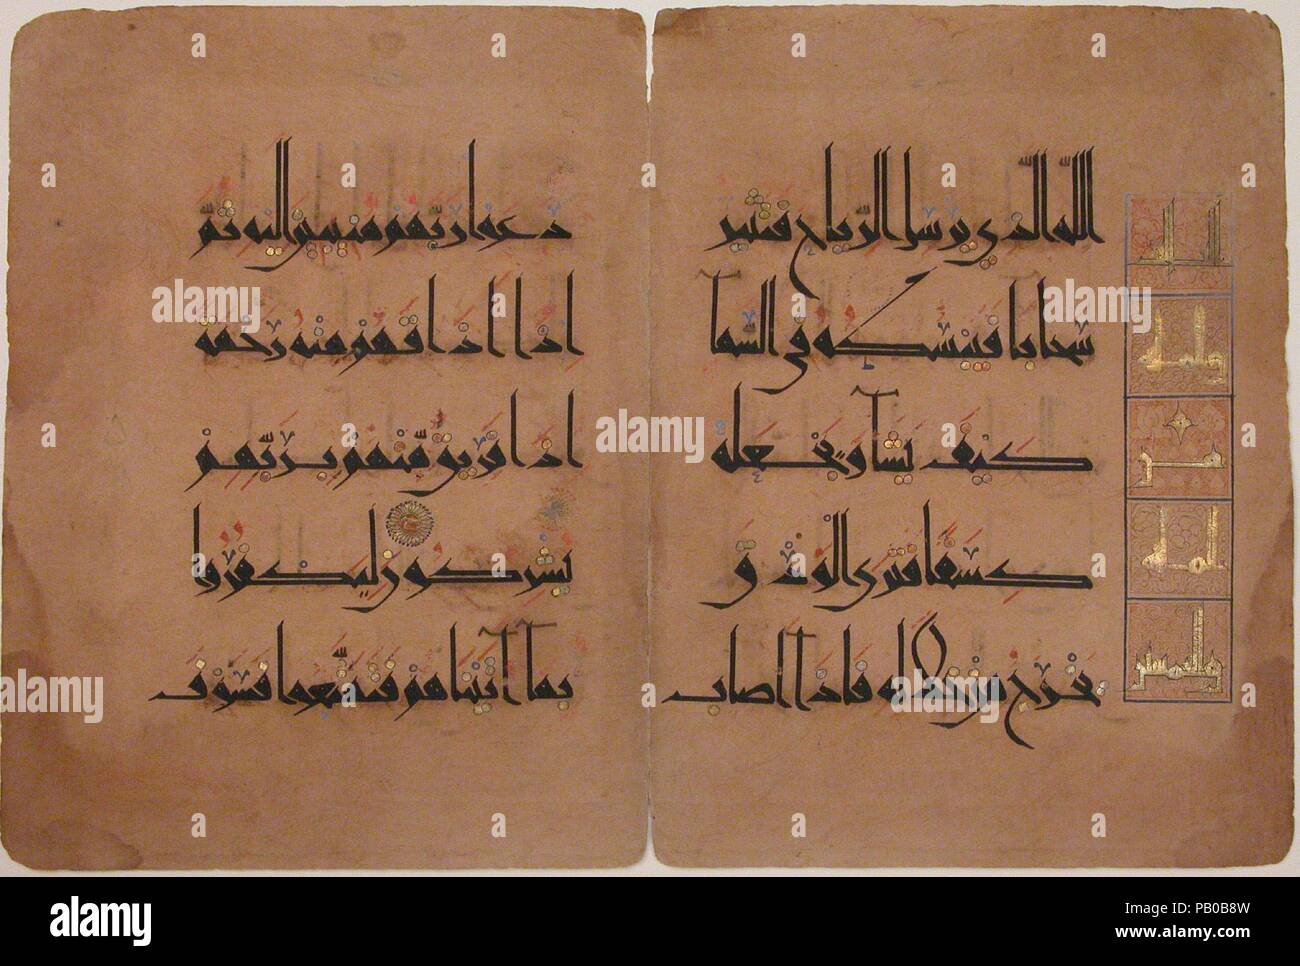 الله الذي يرسل الرياح فتثير
سحابا فيبسطه في السمآ
كيف يشآ ويجعله
كسفا فترى الودق
يخرج من خلاله فاذا اصاب
دعوا ربهم منيبين اليه ثم
اذا اذاقهم منه رحمة
اذا فريق منهم بربهم
يشركون ليكفروا
بمآ آتيناهم فتمتعوا فسوف
alamy stock photo
alamy
Image ID: PB0B8W
www.alamy.com